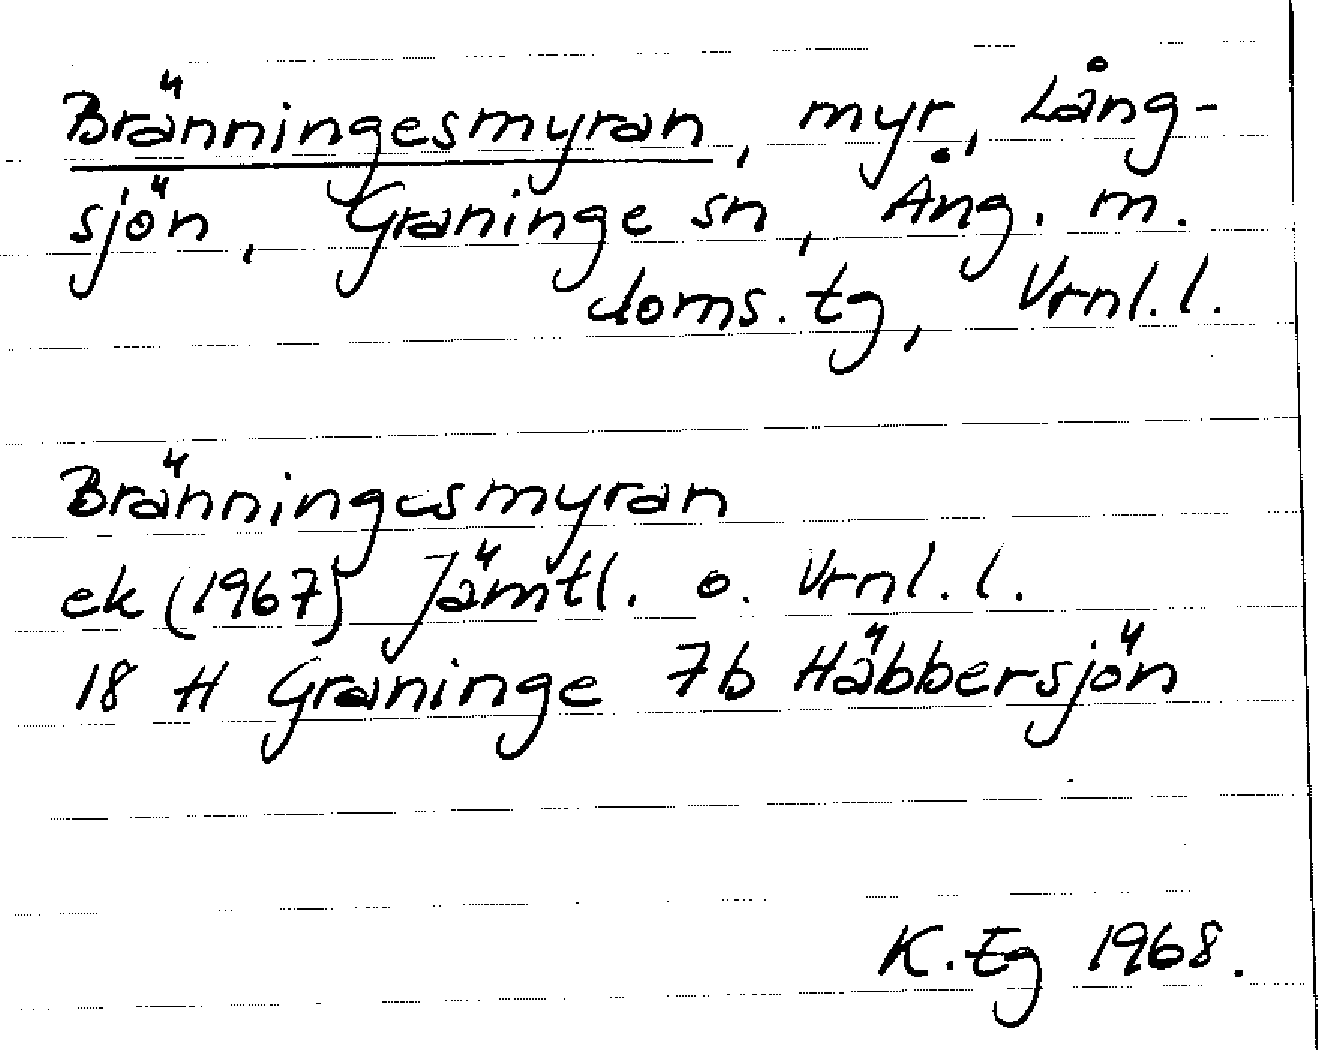 Bränningesmyran, myr, Lång-
sjön, Graninge sn, Ång. m.
doms. tg, Vrnl. l.
Bränningesmyran
ek (1967) Jämtl. o. Vrnl. l.
18 H Graninge 7b Häbbersjön
K. Eg 1968.